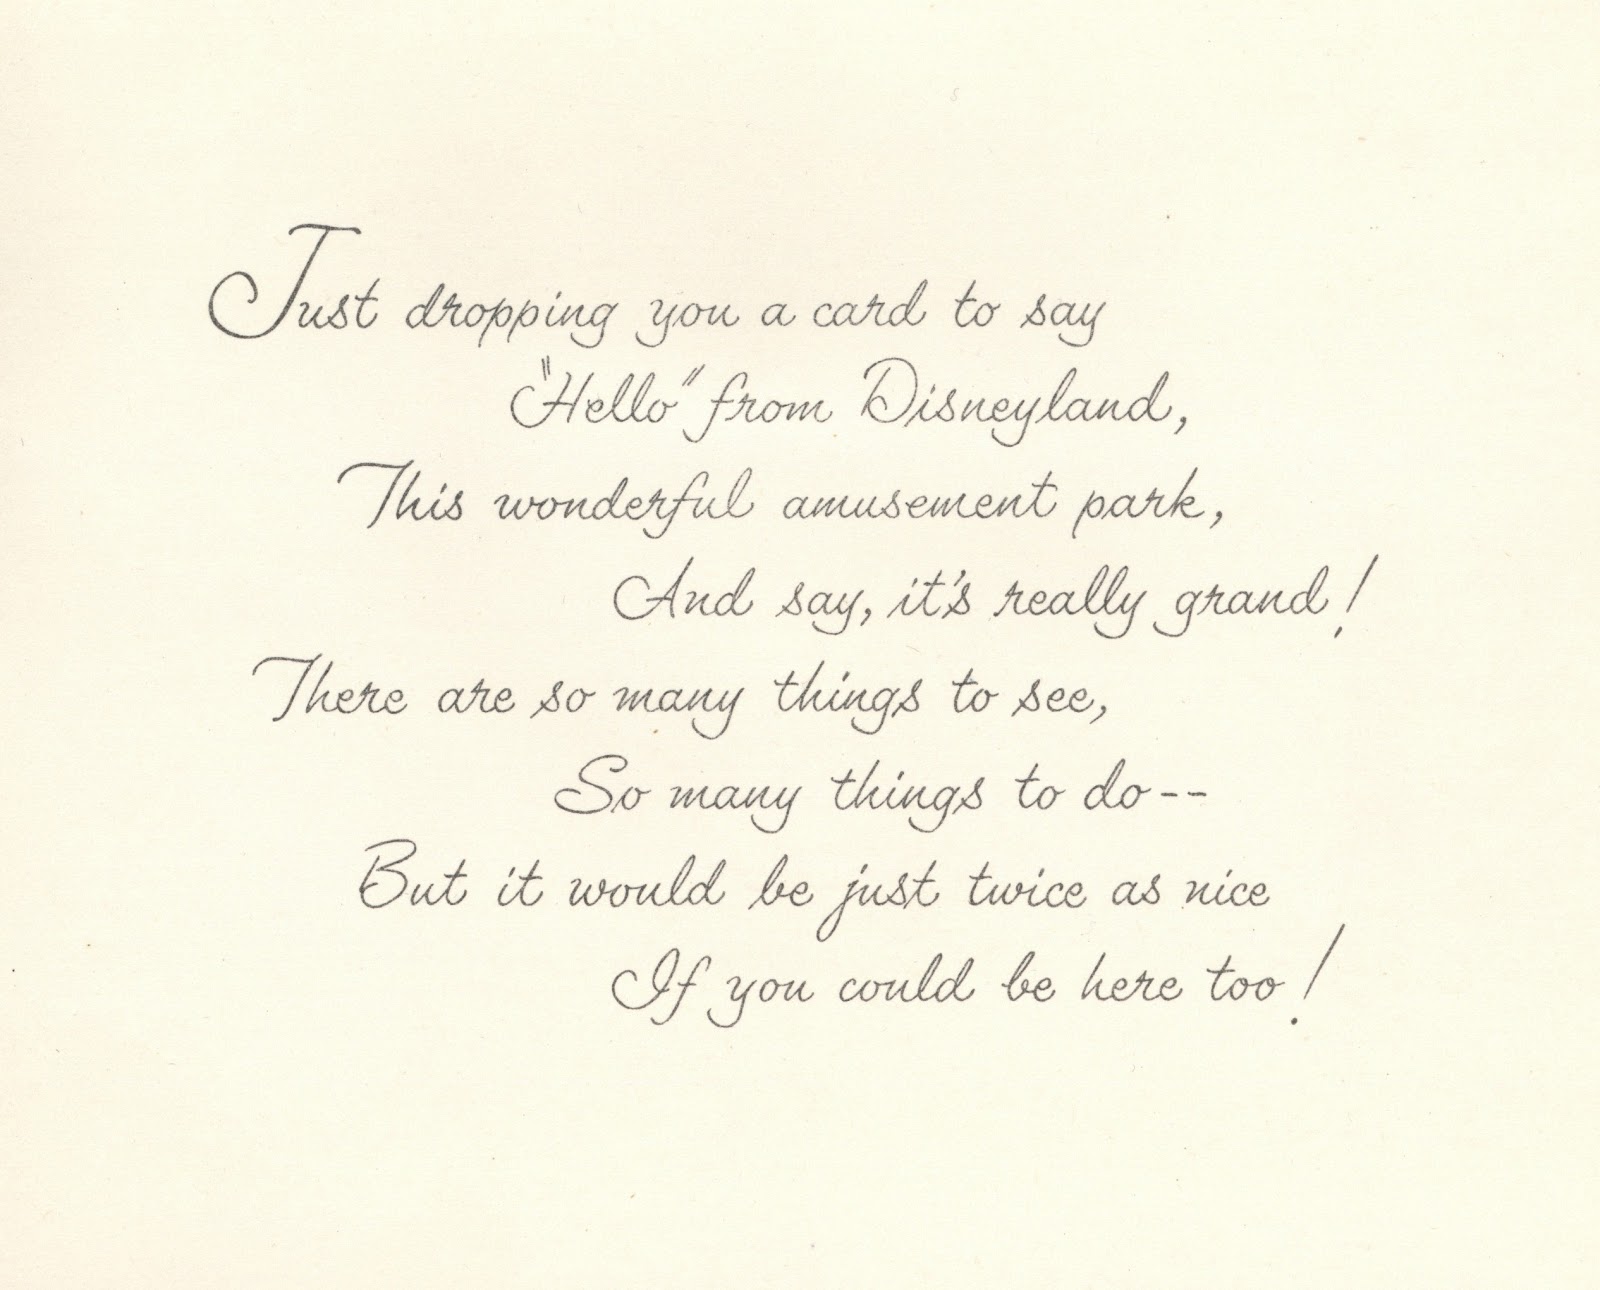 Just dropping you a card to say
"Hello" from Disneyland,
This wonderful amusement park,
And say, it's really grand!
There are so many things to see,
So many things to do--
But it would be just twice as nice
If you could be here too!